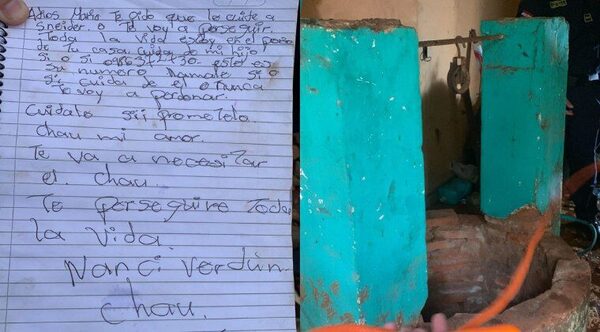 Adios Mario Te pido que lo cuite a
Sneider. o Te voy a perseguir
Toda la vida estoy en el poso
de Tu casa cuida de mi hijo
Si o si este es
Su numero llamale si o
Si cuida de el o nunca
Te voy a perdonar.
Cuidalo sii prometelo.
Chau mi amor.
Te va a necesitar
el. chau.
Te perseguire Toda
la vida.
Nanci verdún.
chau.